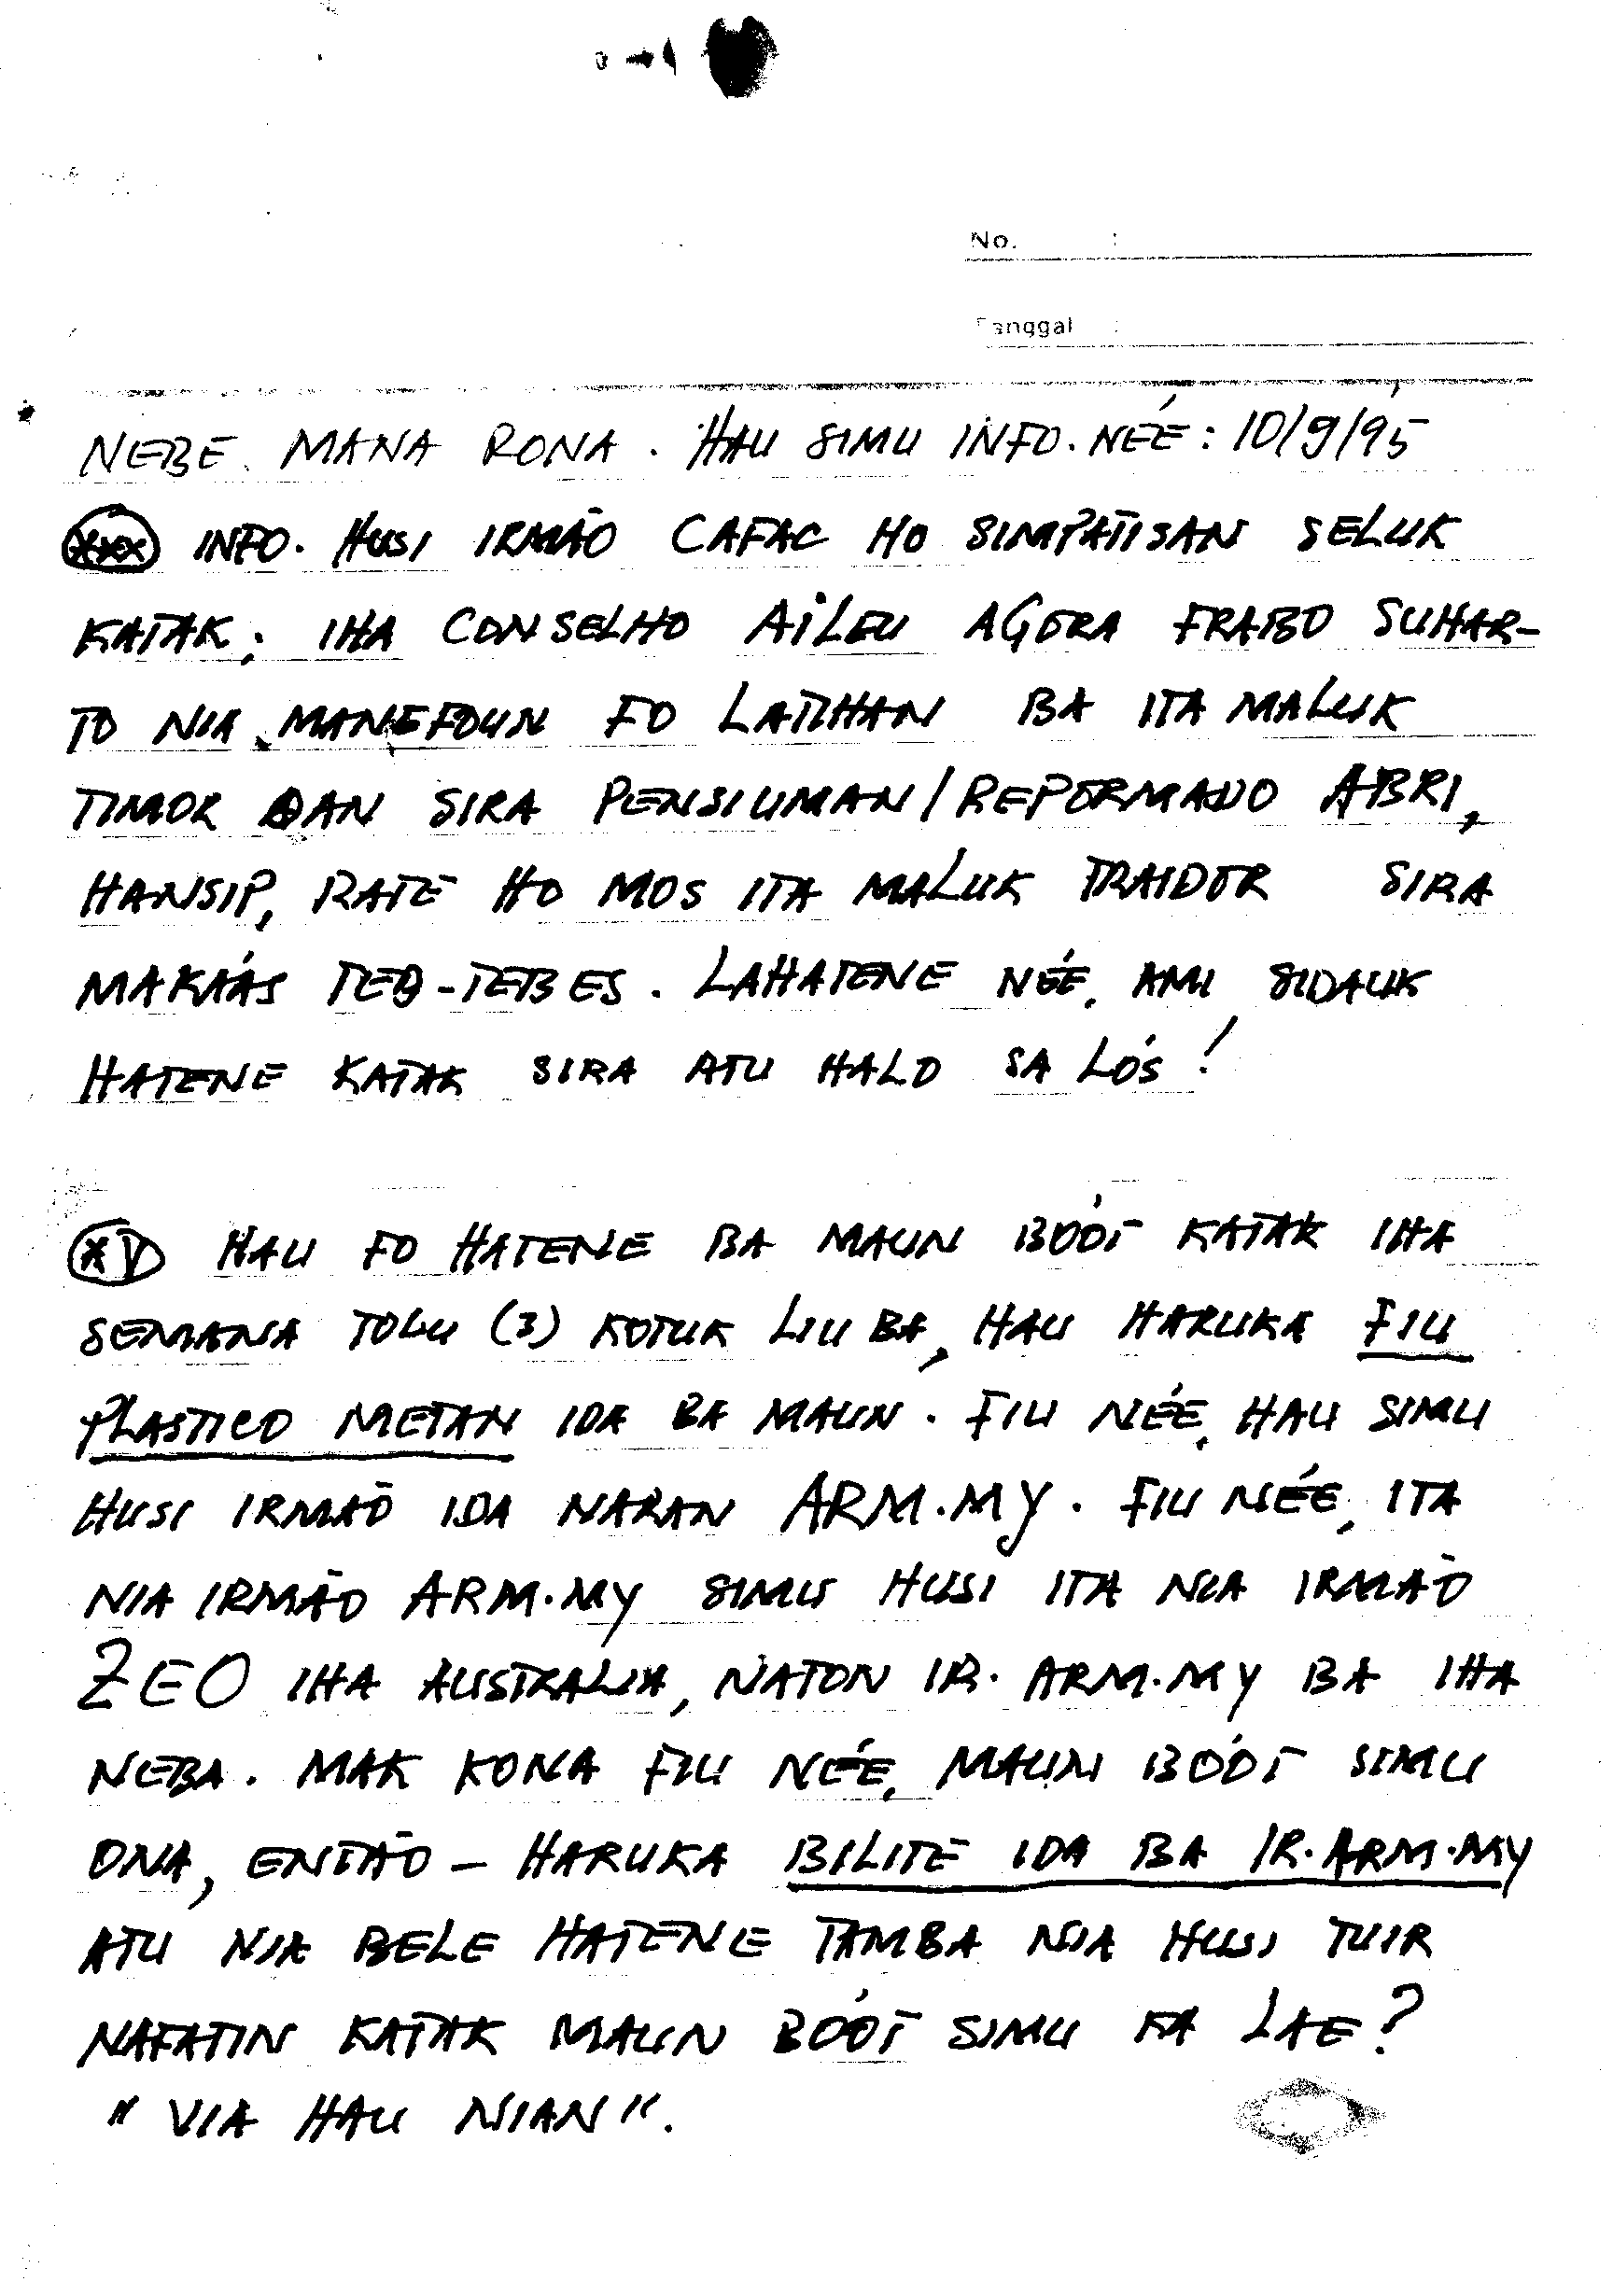 No. :
Tanggal :
NEBE. MANA RONA. HAU SIMU INFO. NÉE: 10/9/95
*** INFO. HUSI IRMÃO CAFAC HO SIMPATISAN SELUK
KATAK; IHA CONSELHO AILEU AGORA FRABO SUHAR-
TO NIA MANEFOUN FO LATIHAN BA ITA MALUK
TIMOR OAN SIRA PENSIUMAN/REPORMADO ABRI,
HANSIP, RATE HO MOS ITA MALUK TRAIDOR SIRA
MAKAÁS TEB-TEBES. LAHATENE NÉE, AMI SIDAUK
HATENE KATAK SIRA ATU HALO SA LÓS!
*V HAU FO HATENE BA MAUN BOÓT KATAK IHA
SEMANA TOLU (3) KOTUK LIU BA, HAU HARUKA FIU
PLASTICO METAN IDA BA MAUN. FIU NÉE, HAU SIMU
HUSI IRMÃO IDA NARAN ARM.MY. FIU NÉE, ITA
NIA IRMÃO ARM.MY SIMU HUSI ITA NIA IRMÃO
ZEO IHA AUSTRALIA, NATON IR. ARM.MY BA IHA
NEBA. MAK KONA FIU NÉE, MAUN BOÓT SIMU
ONA, ENTÃO - HARUKA BILITE IDA BA IR. ARM.MY
ATU NIA BELE HATENE TAMBA NIA HUSI TUIR
NAFATIN KATAK MAUN BOÓT SIMU KA LAE?
"VIA HAU NIAN".